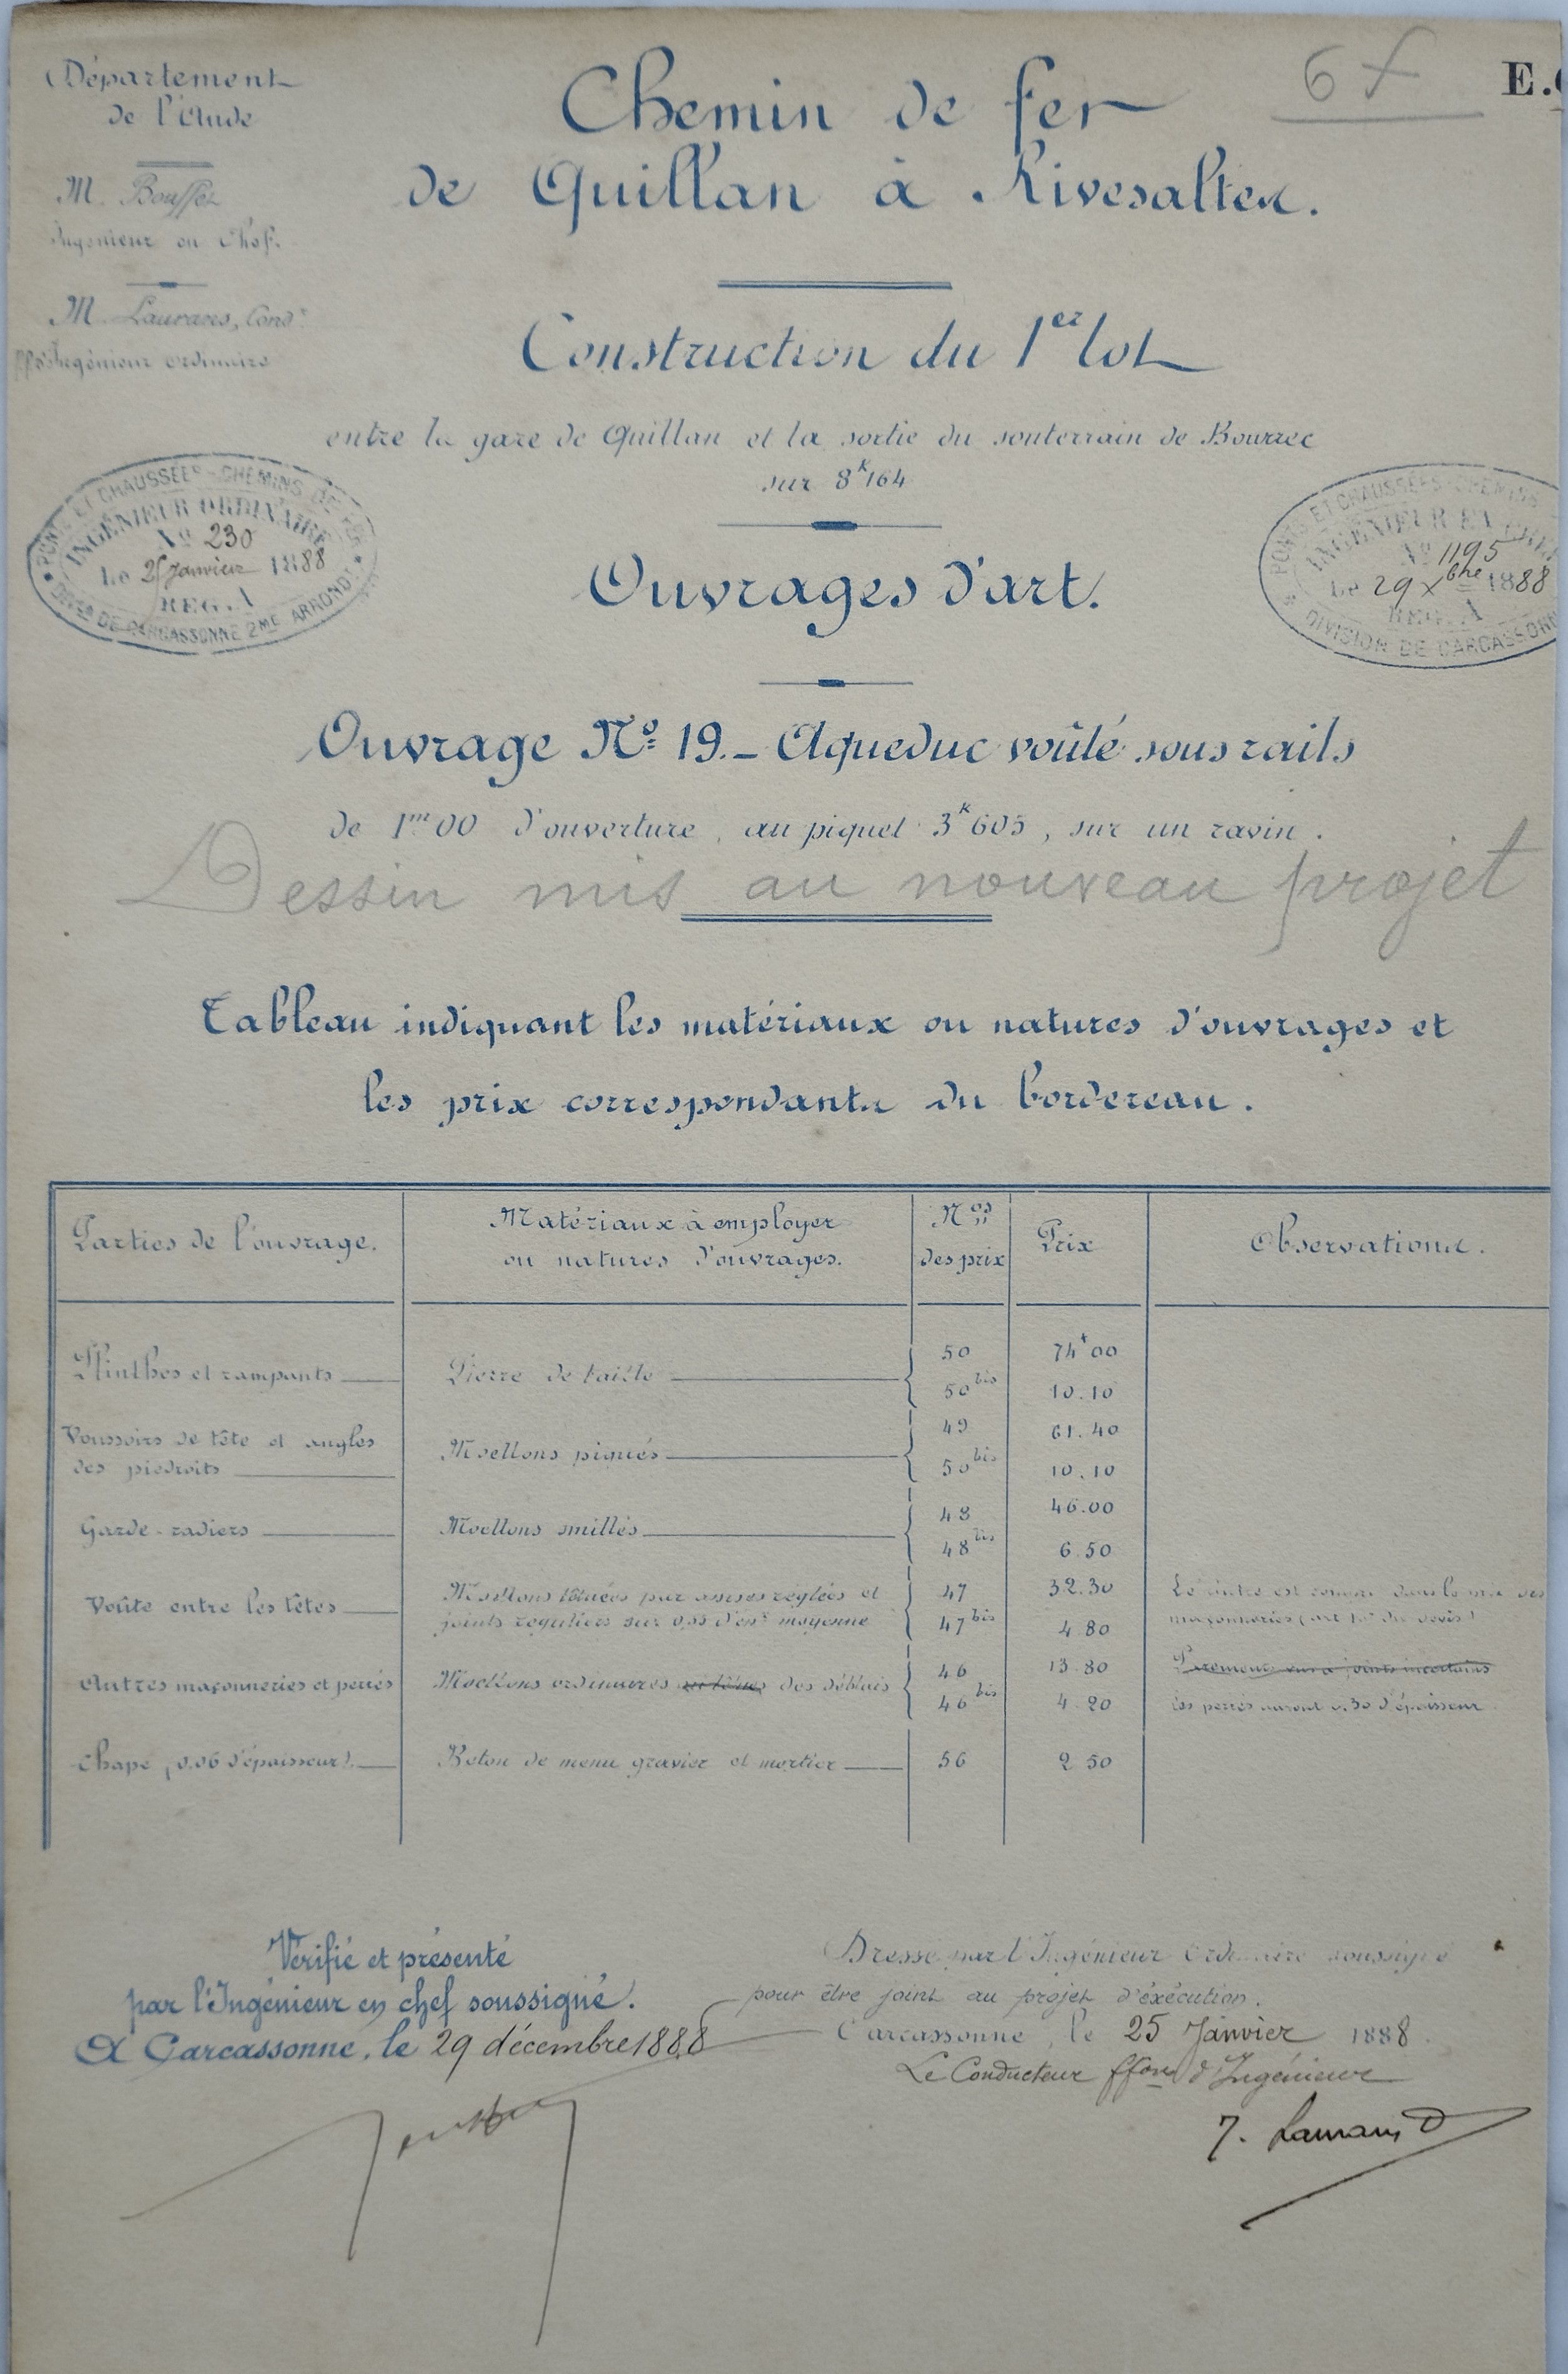 Département
de l'Aude
M. Bouffet
Ingénieur en Chef.
M. Laurans, Cond.r
ff.on d'Ingénieur ordinaire
6 f
E.
Chemin de fer
de Quillan à Rivesaltes.
Construction du 1er lot
entre la gare de Quillan et la sortie du souterrain de Bourrec
sur 8k164
PONTS ET CHAUSSÉES - CHEMINS DE FER
INGÉNIEUR ORDINAIRE
No 230
Le 25 Janvier 1888
REG. A
DE CARCASSONNE 2ME ARRONDT
PONTS ET CHAUSSÉES - CHEMINS
INGÉNIEUR EN CHEF
No 1195
Le 29 Xbre 1888
REG. A
DIVISION DE CARCASSONN
Ouvrages d'art.
Ouvrage No 19. - Aqueduc voûté sous rails
de 1m00 d'ouverture, au piquet 3k605, sur un ravin.
Dessin mis au nouveau projet
Tableau indiquant les matériaux ou natures d'ouvrages et
les prix correspondants du bordereau.
Parties de l'ouvrage.
Matériaux à employer
ou natures d'ouvrages.
Nos
des prix
Prix
Observations.
Plinthes et rampants
Pierre de taille
50
74f00
50 bis
10.10
Voussoirs de tête et angles
des piedroits
Moellons piqués
49
61.40
50 bis
10.10
Garde-radiers
Moellons smillés
48
46.00
48 bis
6.50
Voûte entre les têtes
Moellons têtués par assises réglées et
joints réguliers sur 0,35 d'épr moyenne
47
32.30
47 bis
4.80
Le cintre est compris dans le prix des
maçonneries (art du devis)
Autres maçonneries et perrés
Moellons ordinaires des déblais
46
13.80
46 bis
4.20
Parements vus à joints incertains
Les perrés auront 0.30 d'épaisseur
Chape, (0.06 d'épaisseur)
Béton de menu gravier et mortier
56
2.50
Vérifié et présenté
par l'Ingénieur en chef soussigné.
A Carcassonne, le 29 décembre 1888
Bouffet
Dressé par l'Ingénieur Ordinaire soussigné
pour être joint au projet d'éxécution.
Carcassonne, le 25 Janvier 1888.
Le Conducteur ffons d'Ingénieur
J. Laurans